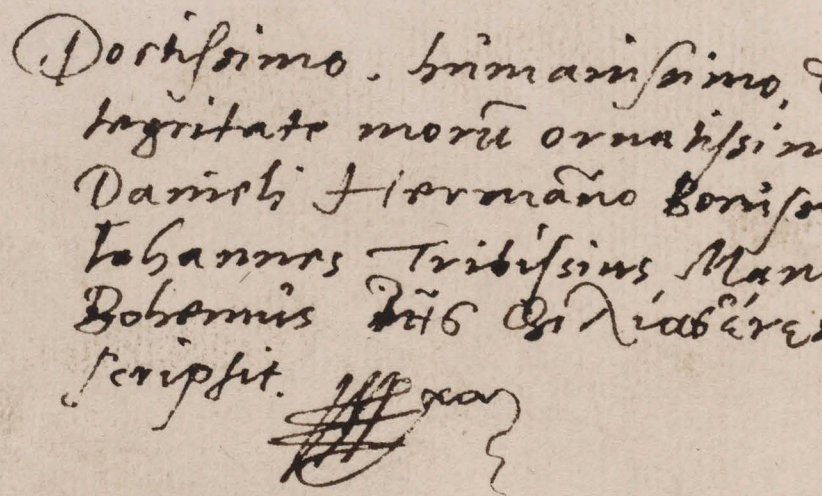 Doctissimo, humanissimo,
tegritate morū ornatissim
Danieli Hermāno Boruss
Iohannes Tribissius Man
Bohemus τῆς φιλίας ἕνε
scripsit.